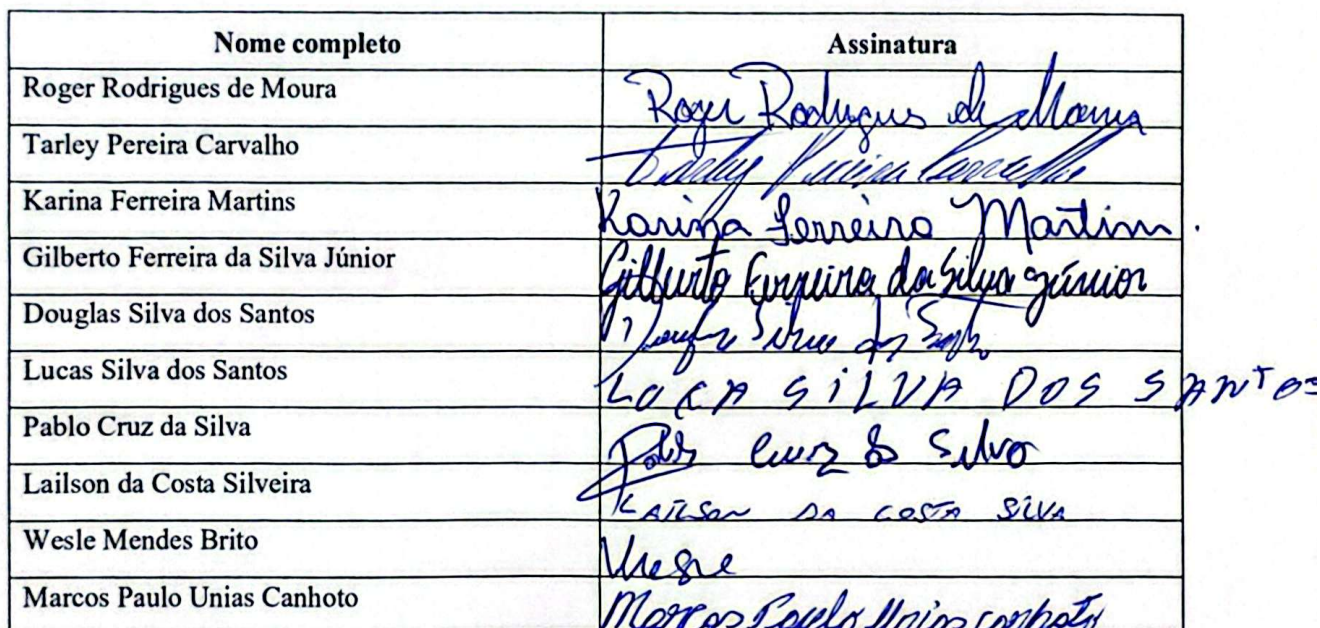 Nome completo Assinatura
Roger Rodrigues de Moura Roger Rodrigues de Moura
Tarley Pereira Carvalho Tarley Pereira Carvalho
Karina Ferreira Martins Karina Ferreira Martins.
Gilberto Ferreira da Silva Júnior Gilberto Ferreira da Silva Júnior
Douglas Silva dos Santos Silva dos
Lucas Silva dos Santos SILVA DOS SANTOS
Pablo Cruz da Silva Cruz da Silva
Lailson da Costa Silveira LAILSON DA COSTA SILVA
Wesle Mendes Brito Wesle
Marcos Paulo Unias Canhoto Marcos Paulo Unias Canhoto